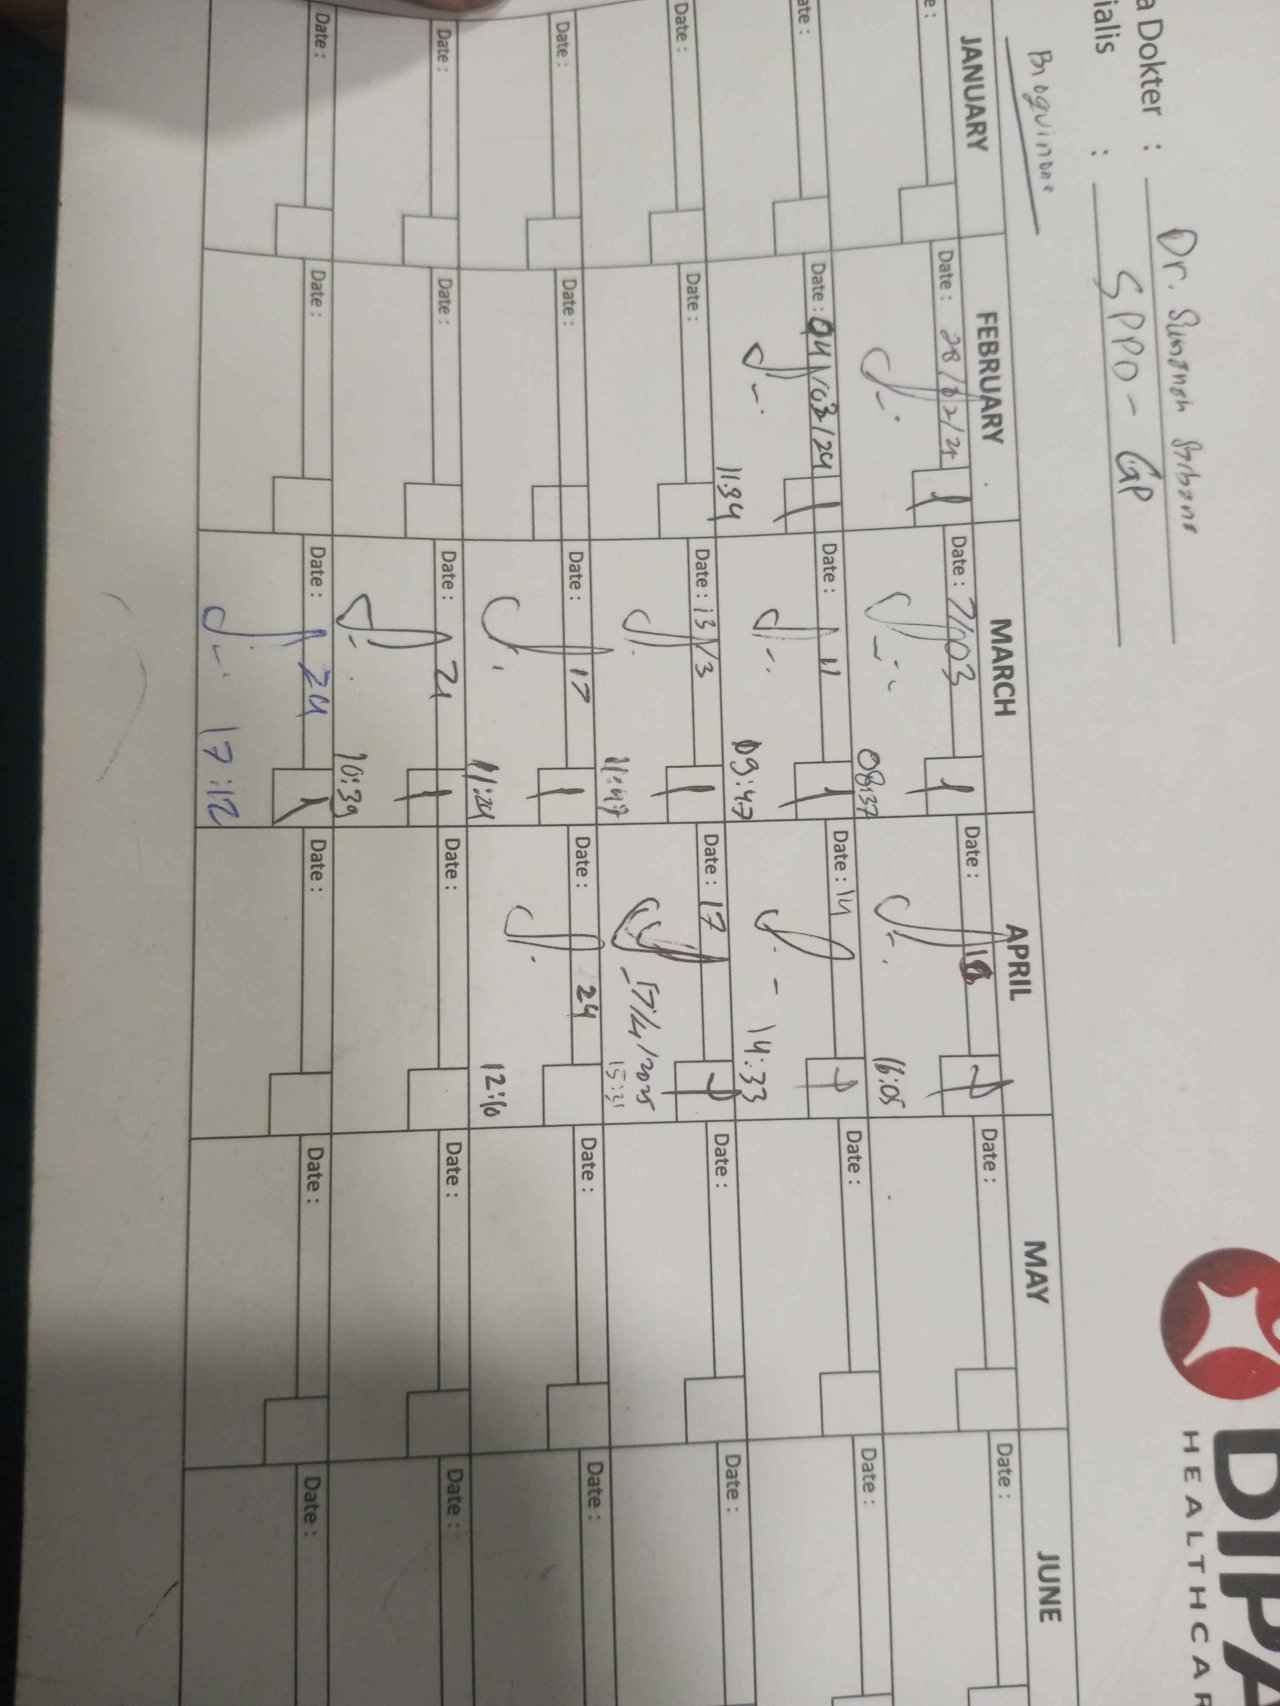 a Dokter : Dr.
ialis : SPPD - GP
DIPA
HEALTHCAR
JANUARY FEBRUARY MARCH APRIL MAY JUNE
e : Date : 28/02/24 Date : 7/03 Date : Date : Date :
08:37 16:05
ate : Date : 04/03/24 Date : 11 Date : 14 Date : Date :
11:34 09:47 14:33
Date : Date : Date : 13/3 Date : 17 Date : Date :
11:47 17/4/2025
15:31
Date : Date : Date : 17 Date : 24 Date : Date :
11:24 12:10
Date : Date : Date : 21 Date : Date : Date :
10:39
Date : Date : Date : 24 Date : Date : Date :
17:12